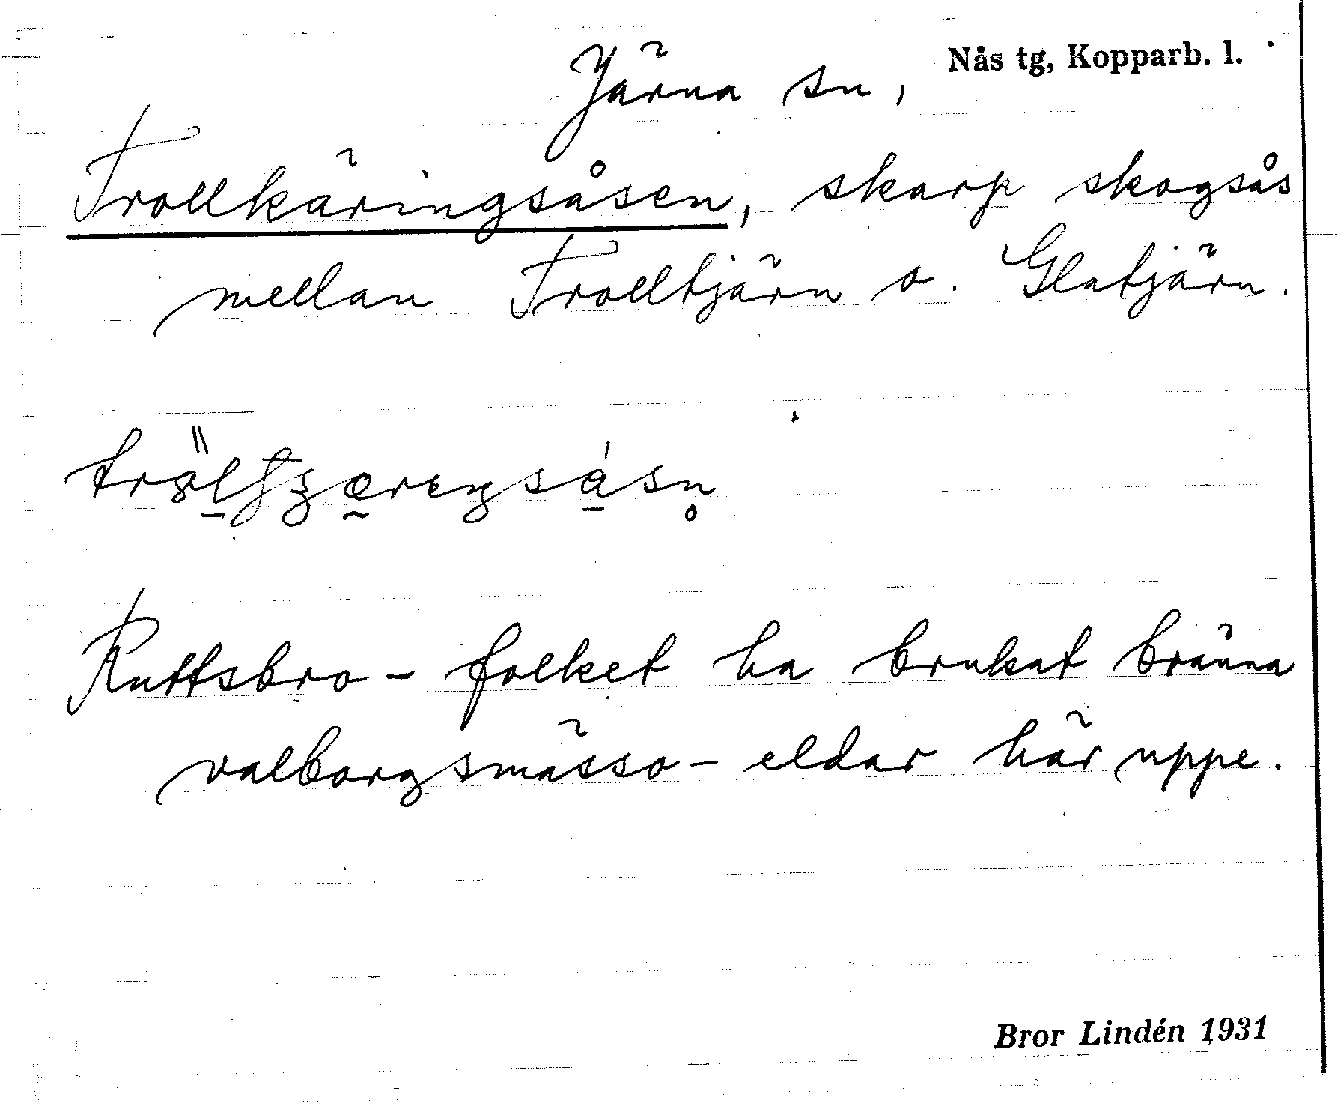 Järna sn, Nås tg, Kopparb. l.
Trollkäringsåsen, skarp skogsås
mellan Trolltjärn o. Glatjärn.
Ruttsbro-folket ha brukat bränna
valborgsmässo-eldar här uppe.
Bror Lindén 1931